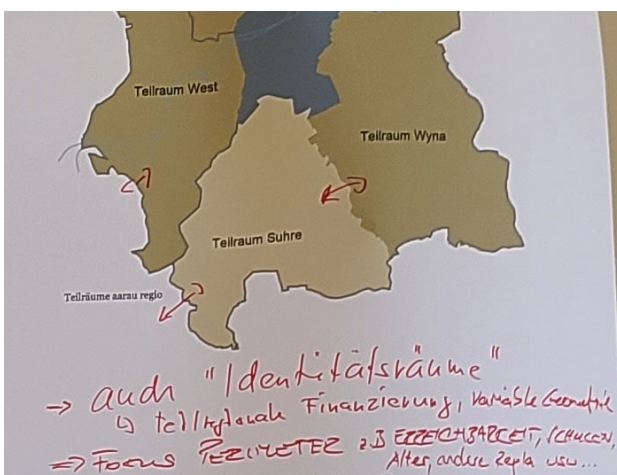 Teilraum West
Teilraum Wyna
Teilraum Suhre
Teilräume aarau regio
→ auch "Identitätsräume"
↳ teilregionale Finanzierung, variable Geometrie
⇒ Focus PERIMETER z.B ERREICHBARKEIT, SCHULEN,
Alter, andere Repla usw...